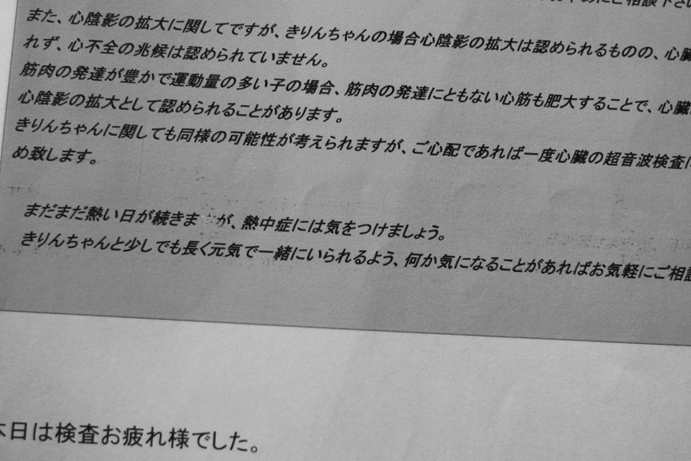 また、心陰影の拡大に関してですが、きりんちゃんの場合心陰影の拡大は認められるものの、心臓
れず、心不全の兆候は認められていません。
筋肉の発達が豊かで運動量の多い子の場合、筋肉の発達にともない心筋も肥大することで、心臓
心陰影の拡大として認められることがあります。
きりんちゃんに関しても同様の可能性が考えられますが、ご心配であれば一度心臓の超音波検査に
め致します。
まだまだ熱い日が続きま が、熱中症には気をつけましょう。
きりんちゃんと少しでも長く元気で一緒にいられるよう、何か気になることがあればお気軽にご相談
本日は検査お疲れ様でした。